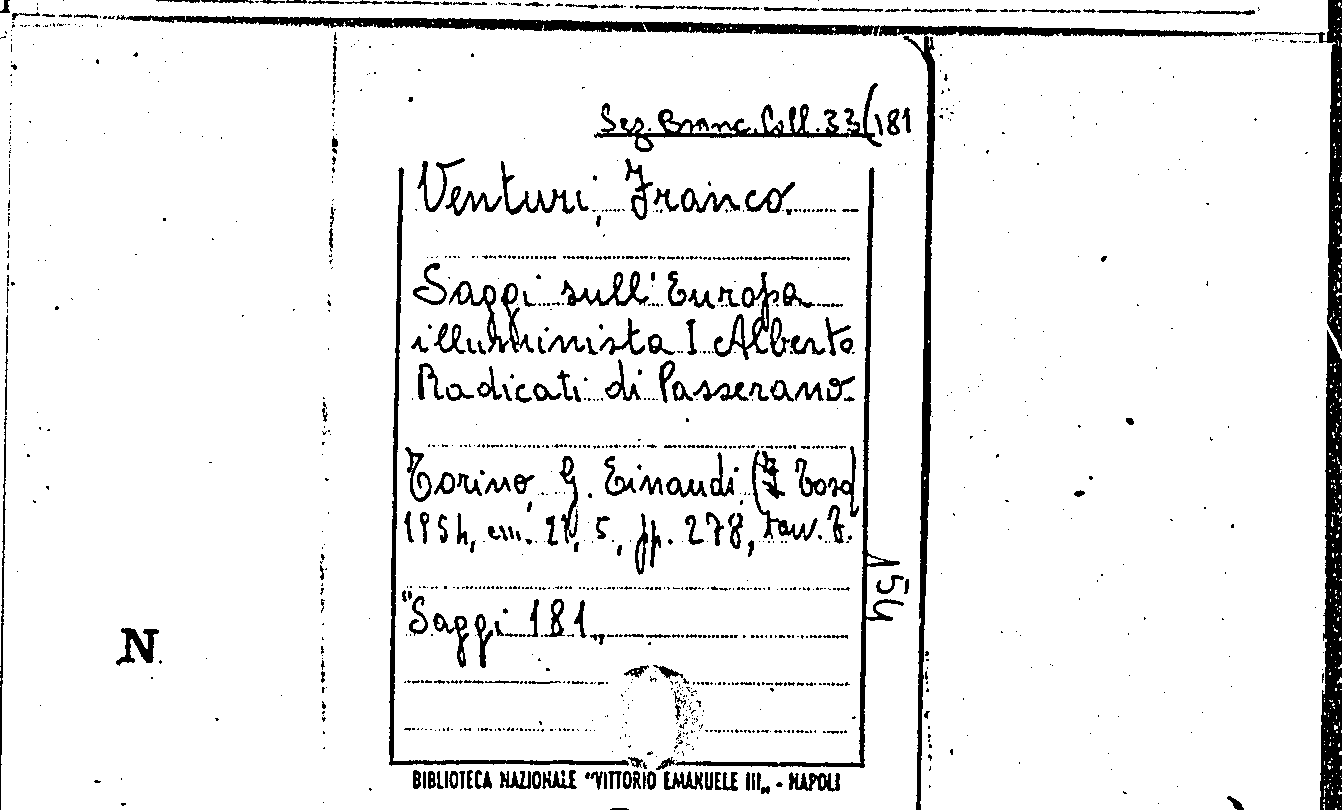 Sez. Branc. Coll. 33(181
Venturi, Franco.
Saggi sull'Europa
illuminista I Alberto
Radicati di Passerano.
Torino, G. Einaudi,
1954, cm. 21,5, pp. 278, tav. 7.
"Saggi 181„
154
N
BIBLIOTECA NAZIONALE "VITTORIO EMANUELE III„ - NAPOLI